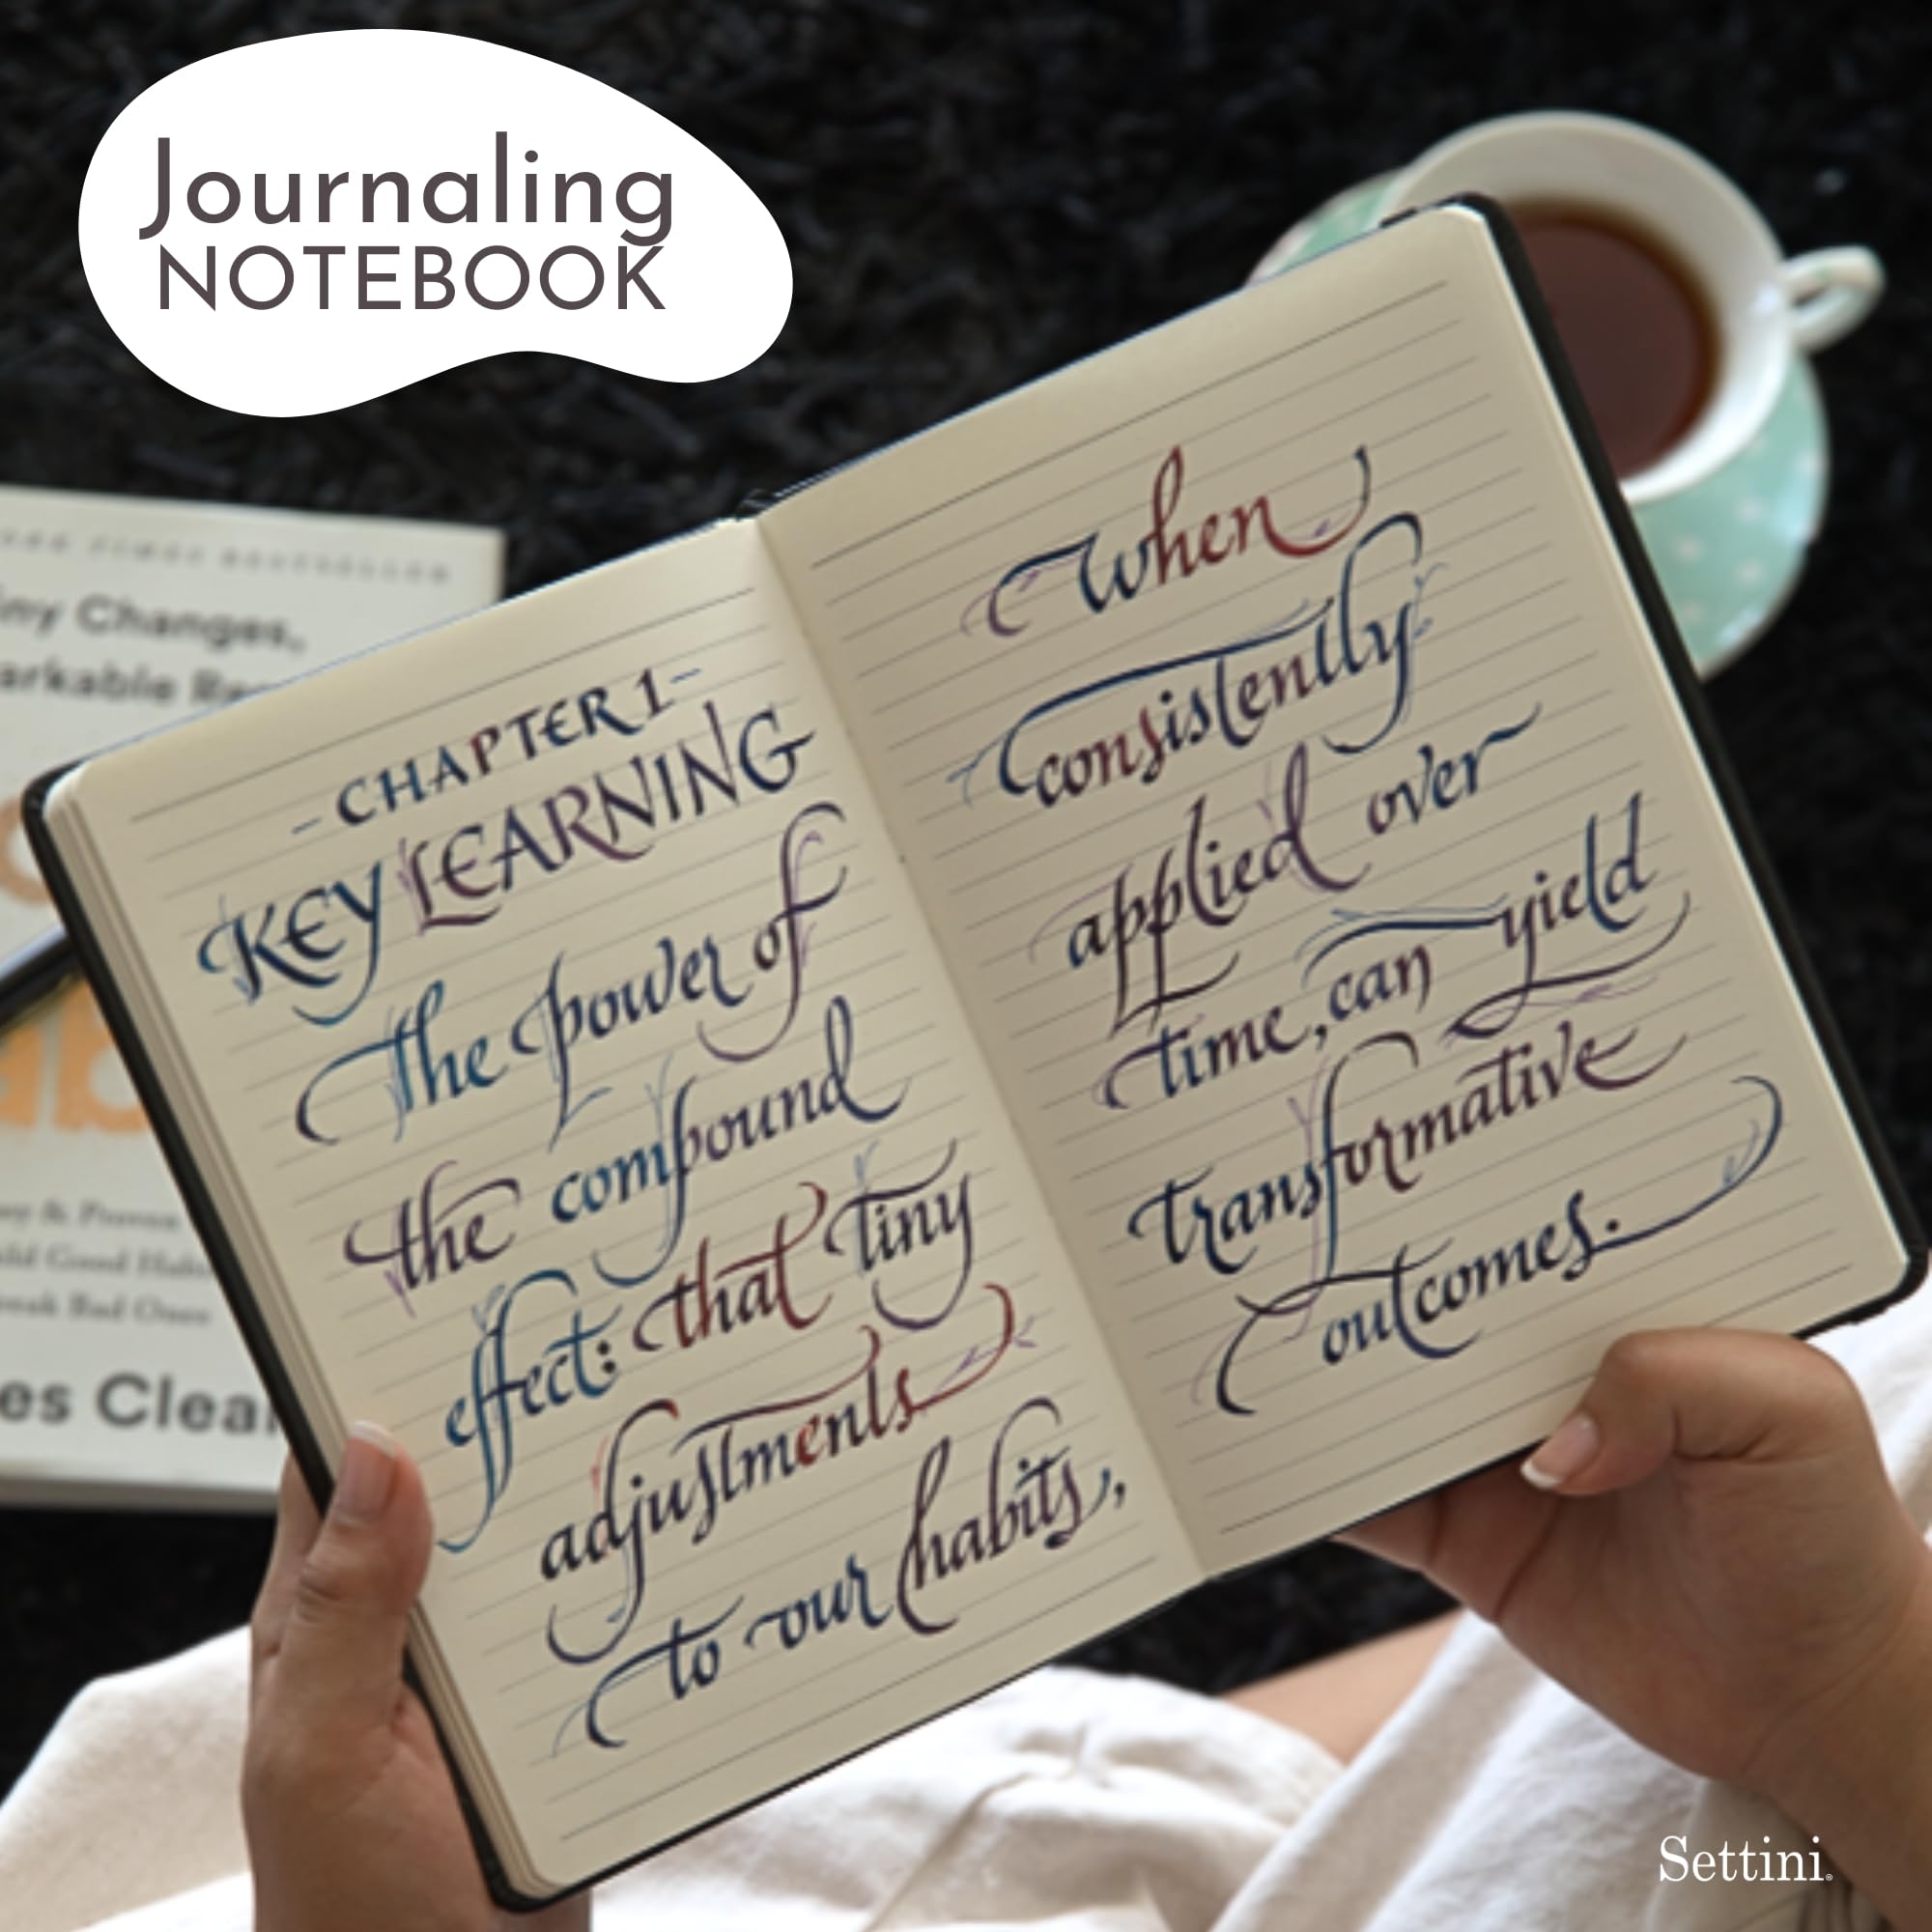 Journaling
NOTEBOOK
TIMES BESTSELLER
Tiny Changes,
Clear
- CHAPTER 1 -
KEY LEARNING
The power of
the compound
effect: that tiny
adjustments
to our habits,
When
consistently
applied over
time, can yield
transformative
outcomes.
Settini